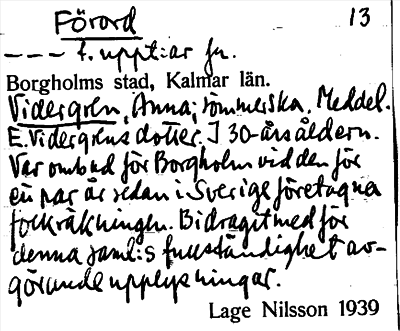 Förord 13
--- f. uppt:ar fr.
Borgholms stad, Kalmar län.
Vidergren, Anna; sömmerska. Meddel.
E. Vidergrens dotter. I 30-årsåldern.
Var ombud för Borgholm vid den för
en par år sedan i Sverige företagna
folkräkningen. Bidragit med för
denna saml:s fullständighet av-
görande upplysningar.
Lage Nilsson 1939